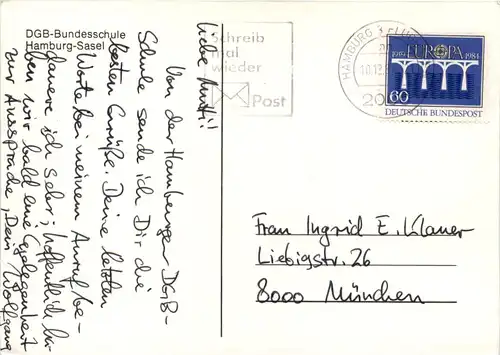 DGB-Bundesschule
Hamburg-Sasel
Liebe Mutti!
Von der Hamburger DGB-
Schule sende ich Dir die
besten Grüße. Deine letzten
Worte bei meinem Anruf be-
dauere ich sehr; hoffentlich ha-
ben wir bald eine Gelegenheit
zur Aussprache, Dein Wolfgang
Schreib
mal
wieder
Post
HAMBURG
20
EUROPA
1959 1984
60
DEUTSCHE BUNDESPOST
Frau Ingrid E. Klauer
Liebigstr. 26
8000 München